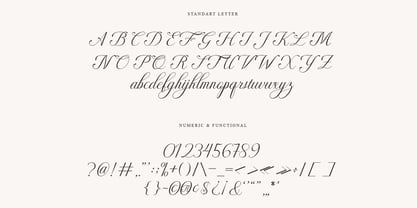 STANDART LETTER
A B C D E F G H I J K L M
N O P Q R S T U V W X Y Z
abcdefghijklmnopqrstuvwxyz
NUMERIC & FUNCTIONAL
0123456789